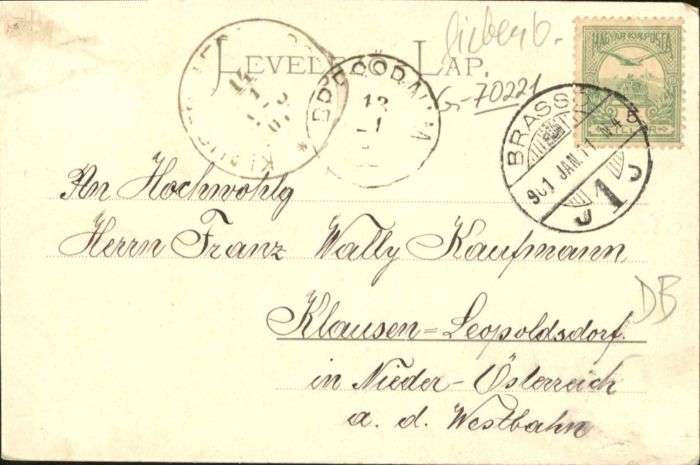 LEVELEZŐ LAP.
Siebenb.
70221
MAGYAR KIR. POSTA
BRASSÓ
901 JAN. 11
1
12
1
An Hochwohlg
Herrn Franz Wally Kaufmann
Klausen=Leopoldsdorf.
in Nieder-Österreich
a. d. Westbahn
DB